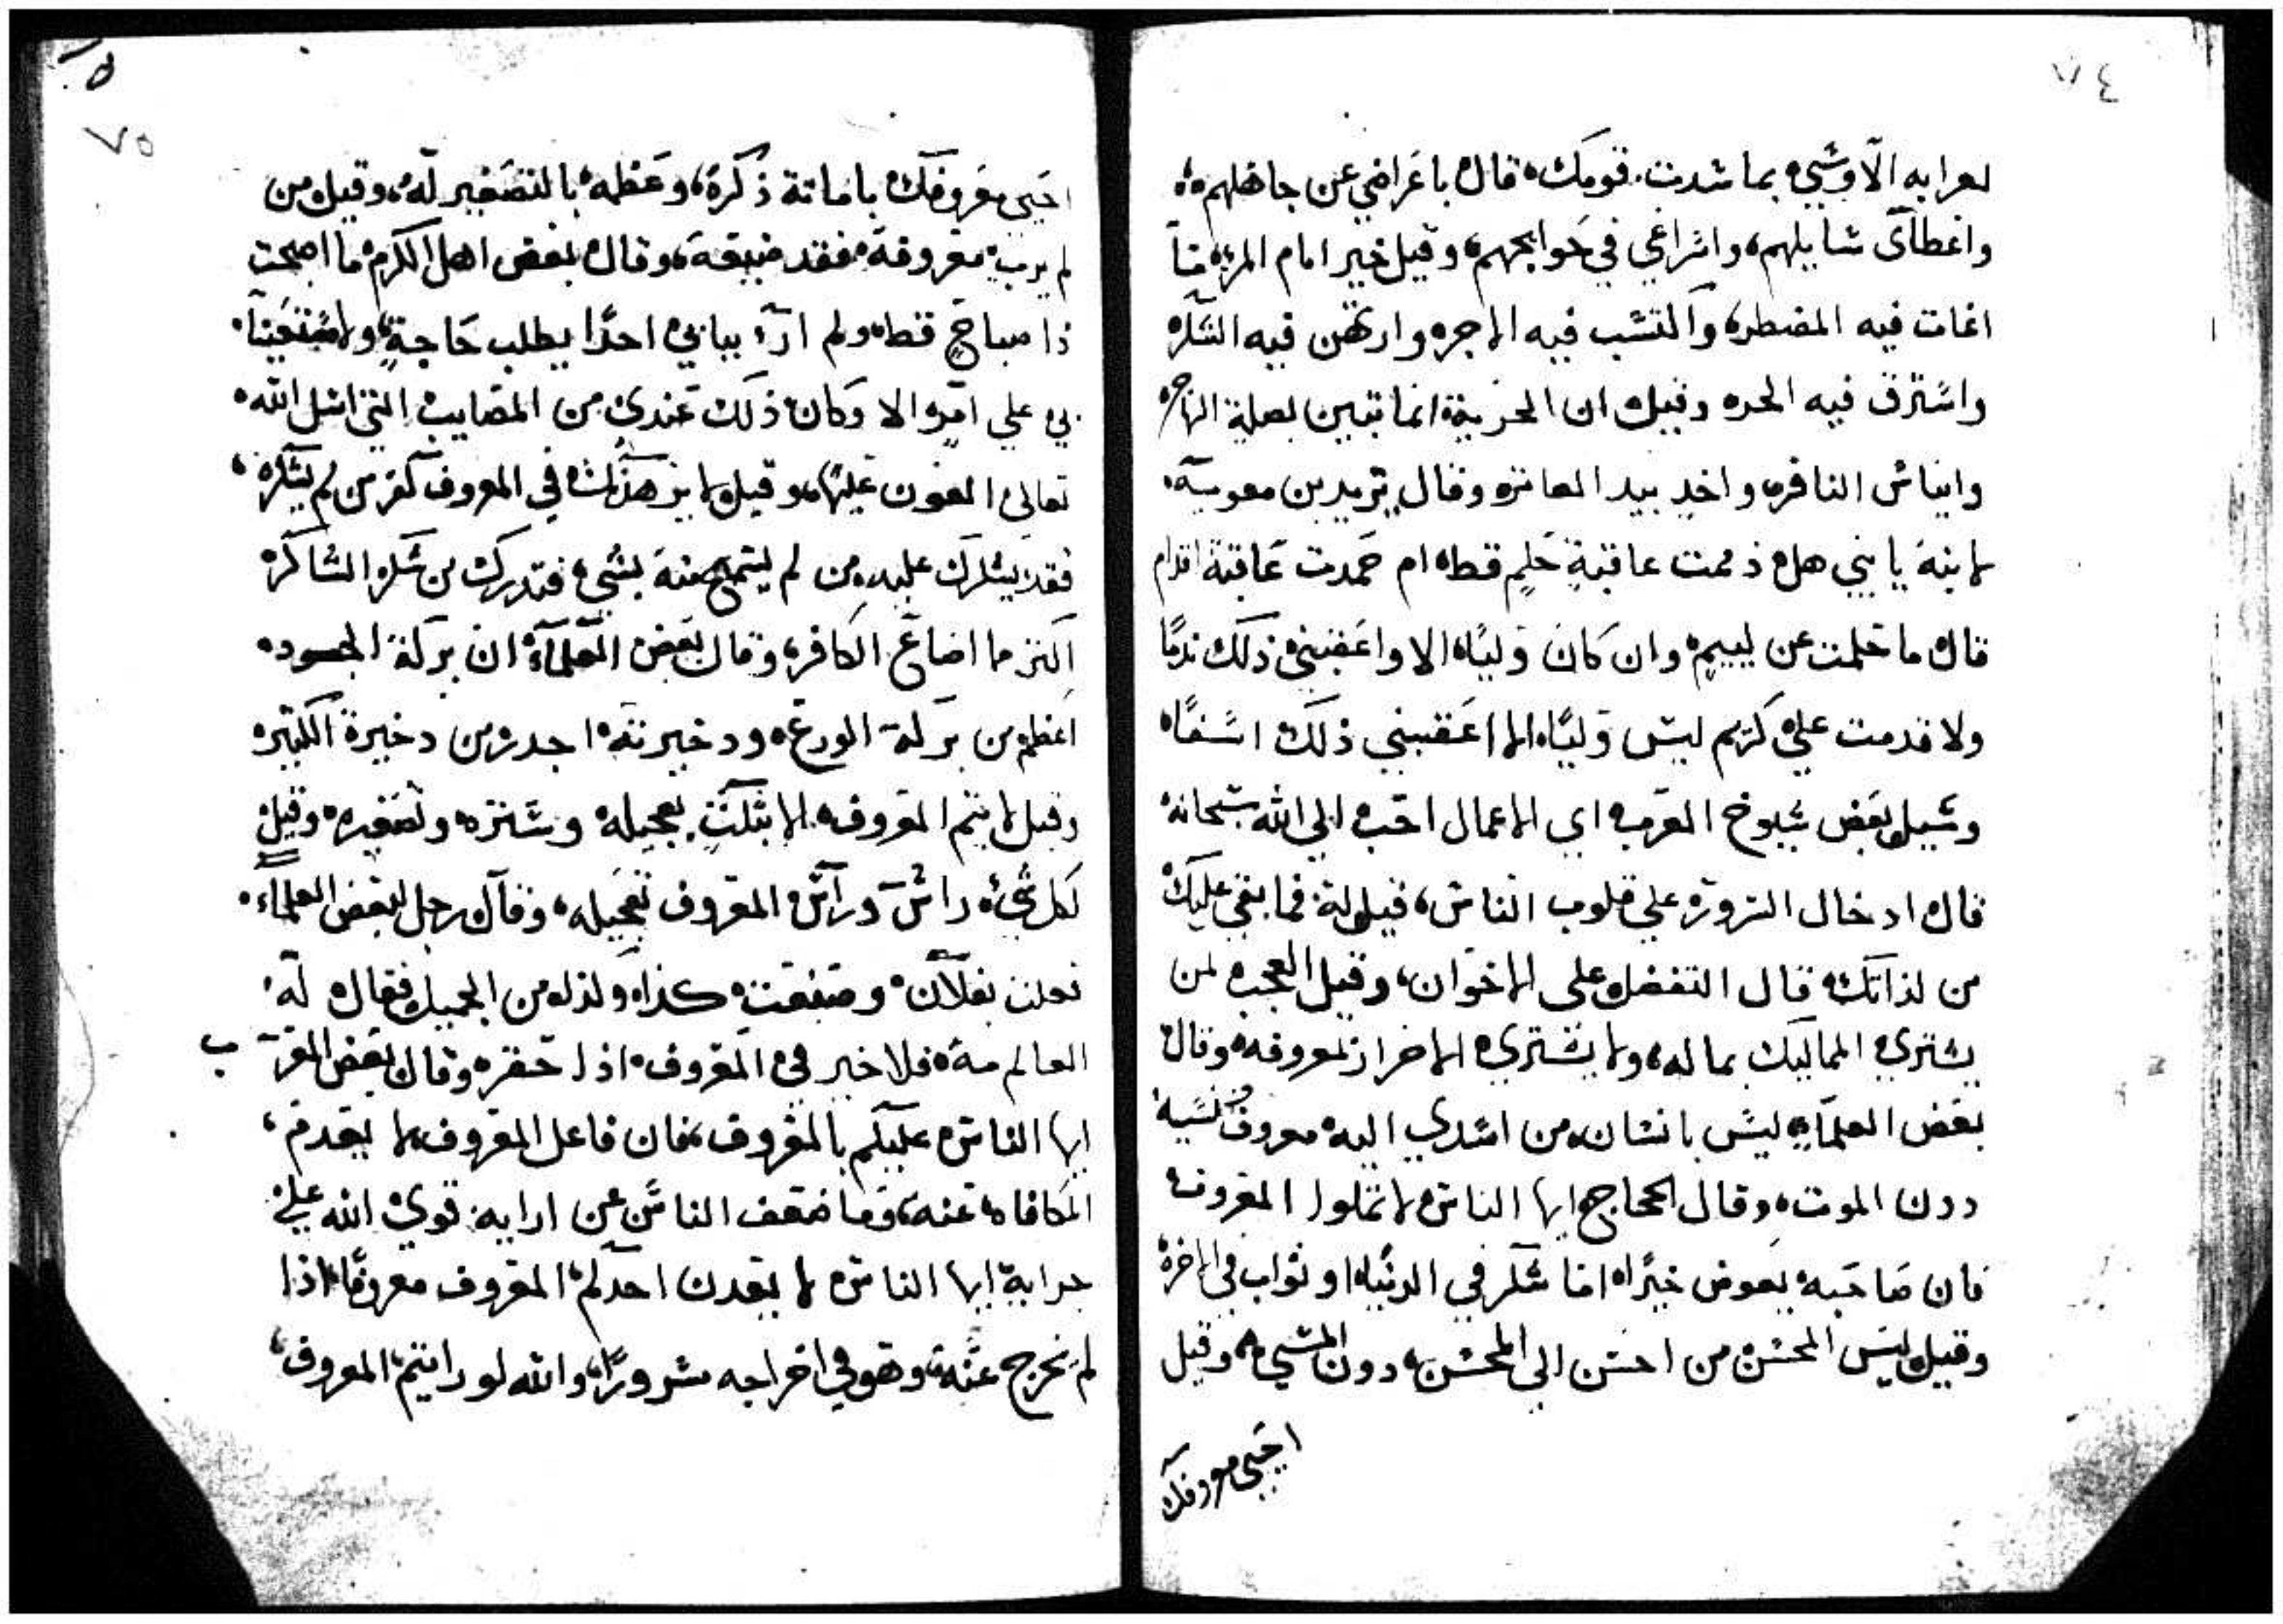 ٧٤
لعرابه الاوسي بما سدت قومك قال باعراضي عن جاهلهم
واعطآى سايلهم، واسراعي في حوايجهم، وقيل خير امام المرء ما
اغات فيه المضطر، واكتسب فيه الاجر وارتهن فيه الشكر
واسترق فيه الحر، وقيل ان الحرية انما تتبين بصلة الهاجر
وايناس النافر، واخد بيد العاثر، وقال يزيد بن معوية
لابنه يا بني هل ذممت عاقبة حلم قط، ام حمدت عاقبة اقدام
قال ما حلمت عن لييم وان كان وليًا، الا واعقبني ذلك ندمًا
ولا قدمت على كريم ليس وليًا، الا اعقبني ذلك اسفًا
وسيل بعض شيوخ العرب اي الاعمال احب الى الله سبحانه
قال ادخال السرور على قلوب الناس، قيل له فما بقي عليك
من لذاتك قال التفضل على الاخوان، وقيل العجب لمن
يشتري المماليك بماله، ولا يشتري الاحرار بمعروفه وقال
بعض العلماء ليس بانسان من اسدي اليه معروف نسيه
دون الموت، وقال الحجاج ايها الناس لا تملوا المعروف
فان صاحبه يعوض خيرًا، اما شكر في الدنيا، او ثواب في الاخرة
وقيل ليس المحسن من احسن الى المحسن، دون المسي، وقيل
احيي معروفك
٧٥
احيي معروفك باماتة ذكره، وعظمه بالتصغير له، وقيل من
لم يرب معروفة فقد ضيعه، وقال بعض اهل الكرم ما اصبحت
ذا صباحٍ قط، ولم ارَ ببابي احدًا يطلب حاجةٍ، ولا مستعينًا
بي على امرٍ الا وكان ذلك عندي من المصايب التي اسل الله
تعالى العون عليها، وقيل لا يزهدنك في المعروف كفر من لم يشكره،
فقد يشكرك عليه من لم يستمتع منه بشيء، فتدرك من شكر الشاكر
اكثر ما اضاع الكافر، وقال بعض العلمآء ان بركة الجود
اعظم من بركة الورع، ودخيرته اجدر من دخيرة الكثير
وقيل لا يتم المعروف الا بثلث تعجيله وستره وتصغيره وقيل
لكل شيء راس وراس المعروف تعجيله، وقال رجل لبعض العلماء
فعلت بفلان وصنعت كذا، ولذلك من الجميل فقال له
العالم مة، فلا خير في المعروف اذا حقر، وقال بعض العرب
ايها الناس عليكم بالمعروف، فان فاعل المعروف لا يعدم،
المكافاه عنه، وما ضعف الناس عن ادايه قوي الله على
جزايه ايها الناس لا يعدن احدكم المعروف معروفًا، اذا
لم يخرج عنه، وهو في اخراجه مسرورًا، والله لو رايتم المعروف،